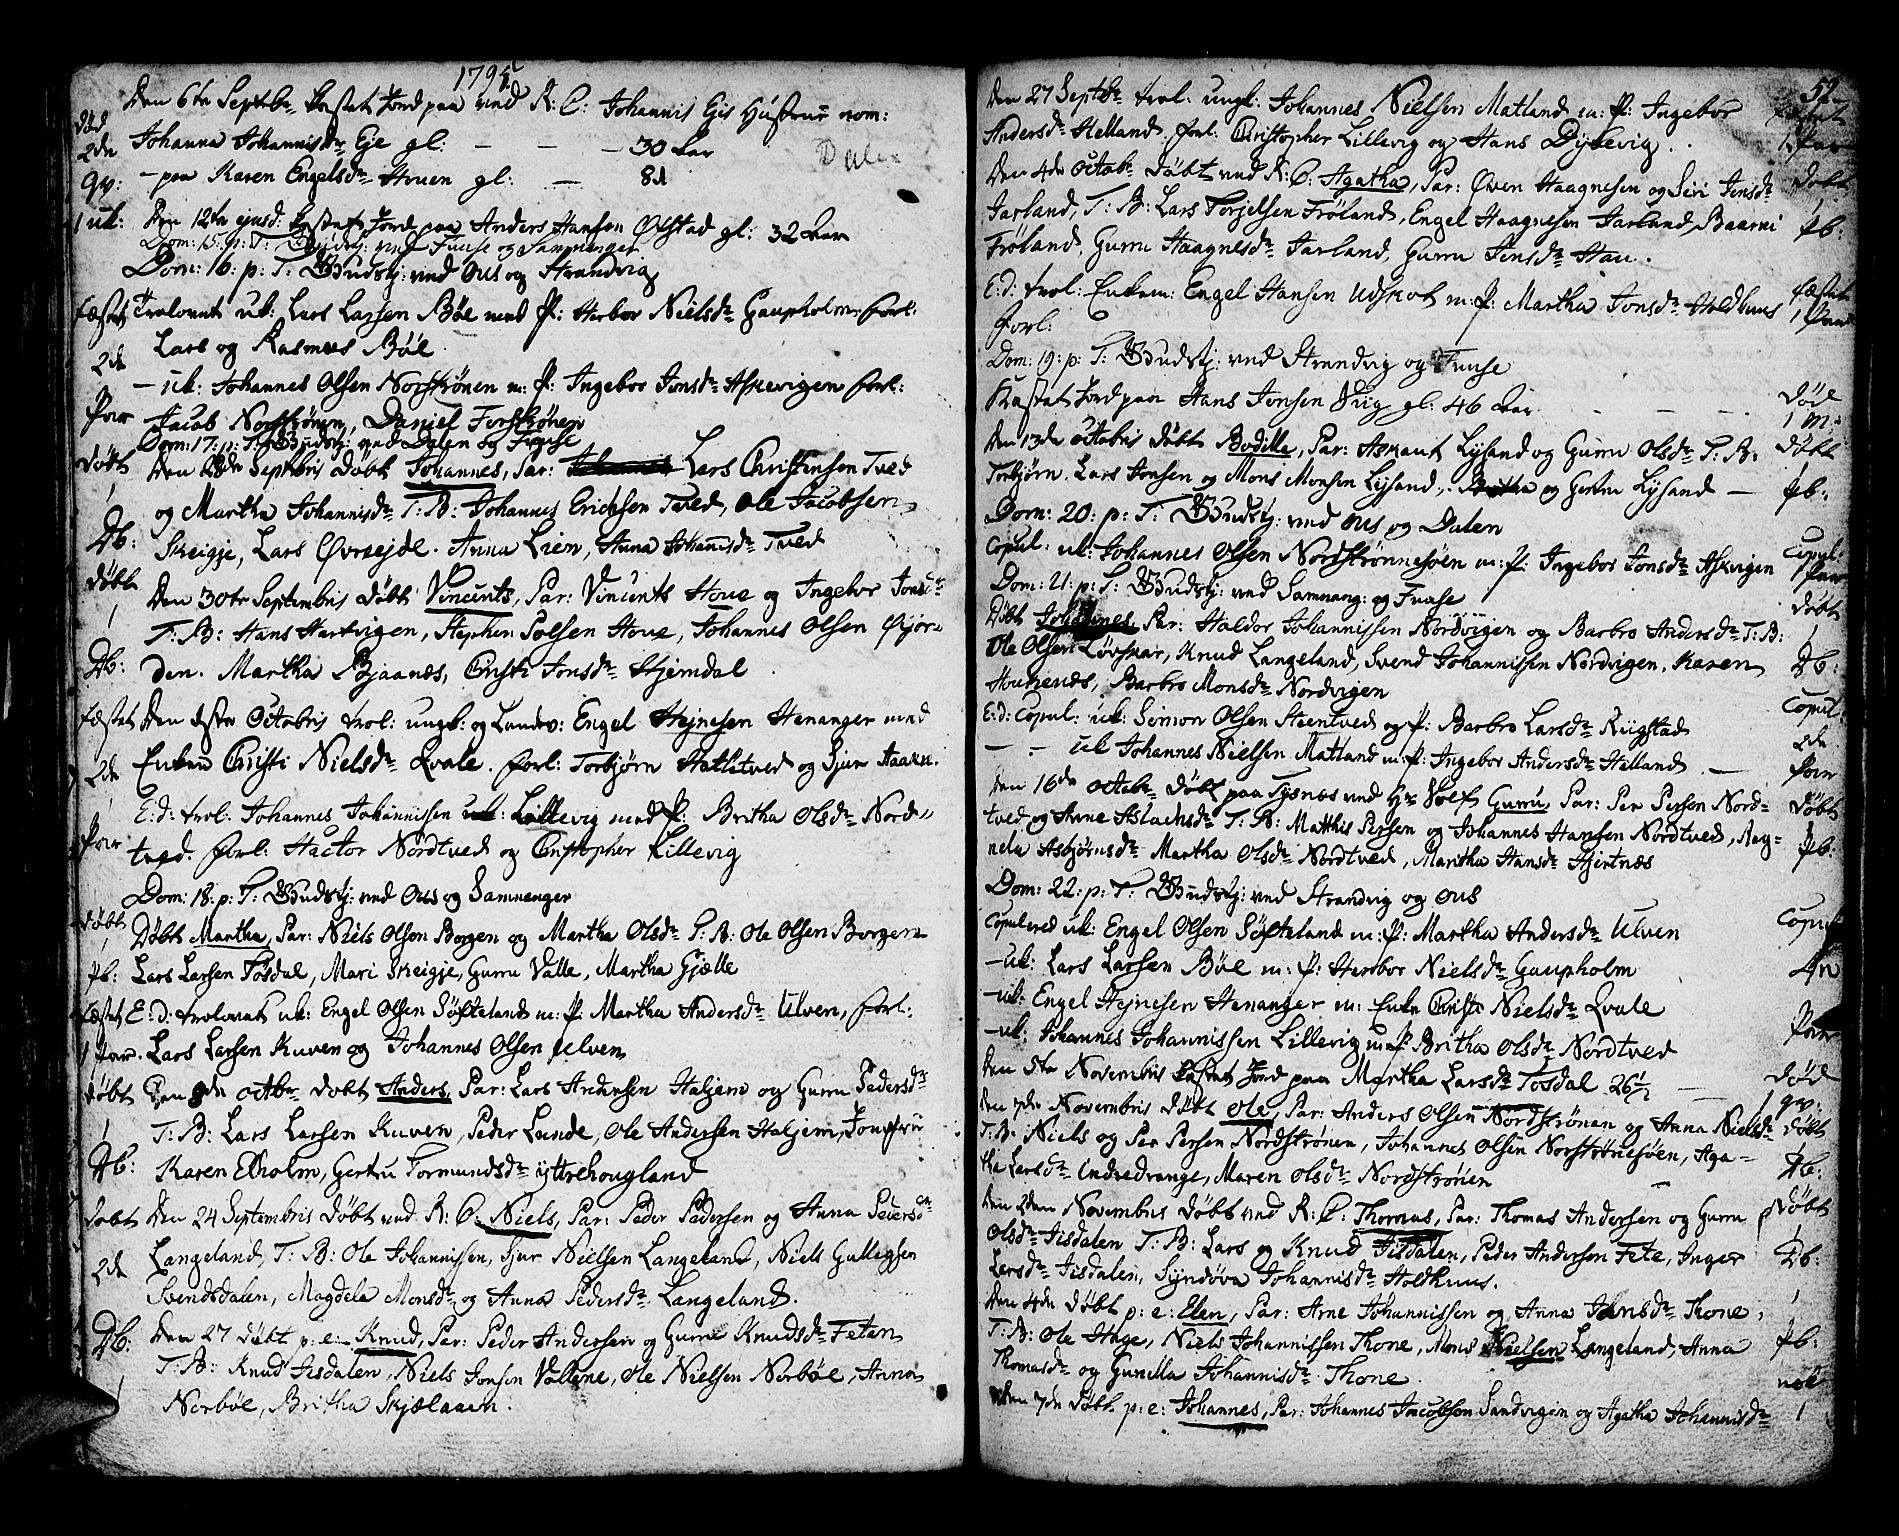 1795
Den 6te Septbr kastet Jord paa ved R: C: Johannis Ejs Hustrue nom:
Død
Johanna Johannisdr Eje gl: - - - 30 Aar
2de
- paa Karen Engelsdr Houen gl: - 8d
Dalen
qv:
1 uk: Den 12te ejusd: kastet Jord paa Anders Hansen Ølstad gl: 32 Aar
Dom: 15: p: T: Gudstj: ved Fuuse og Samnanger
Dom: 16: p: T: Gudstj: ved Ous og Strandvig
fæstet Trolovet uk: Lars Larsen Bøe med P: Herbor Nielsdr Gaupholm forl:
Lars og Rasmus Bøe
2de
- uk: Johannes Olsen Norstrønen m: P: Ingebor Jonsdr Askevigen forl:
Par
Jacob Norstrønen, Daniel Forstrønen
Dom: 17: p: T: Gudstj: ved Dalen og Fuuse
Døbt Septbris Døbt Johannes, Par: Lars Christensen Tved
1 og Martha Johannisdr T: B: Johannes Erichsen Tved, Ole Jacobsen
Db: Skeigje, Lars Øvrejde. Anna Lien, Anna Johannisdr Tved
Døbt Den 30te Septembris Døbt Vincents, Par: Vincents Houe og Ingebor Jonsdr
1 T: B: Hans Hartvigen, Stephen Polsen Houe, Johannes Olsen Gjør-
Db: den. Martha Bjaanæs, Christi Jonsdr Hjemdal
fæstet Den Octobris trol: ungk: og Landev: Engel Hejnesen Henanger med
2de Enken Christi Nielsdr Qvale. forl: Torbjørn Hatletved og Sjur Haaven.
E: d: trol: Johannes Johannissen Lillevig med P: Britha Olsdr Nord-
Par tved. forl: Hactor Nordtved og Christopher Lillevig
Dom: 18: p: T: Gudstj: ved Ous og Samnanger
Døbt
Døbt Martha, Par: Niels Olsen Borgen og Martha Olsdr T: B: Ole Olsen Borgen
1
Pb: Lars Larsen Tosdal, Mari Skeigje, Gurru Valle, Martha Gjælle
fæstet E: d: trolovet uk: Engel Olsen Søfteland m: P: Martha Andersdr Ulven, forl:
1 Par. Lars Larsen Kuven og Johannes Olsen Ulven
Døbt Den 8de Octbr Døbt Anders, Par: Lars Andersen Haljem og Gurru Pedersdr
1 T: B: Lars Larsen Kuven, Peder Lunde, Ole Andersen Haljem, Jomfru
Db: Karen Elholm, Gertru Tormundsdr Yttrehougland
Døbt Den 24 Septembris Døbt ved R: C: Niels, Par: Peder Pedersen og Anna Pedersdr
2de Langeland, T: B: Ole Johannissen, Sjur Nielsen Langeland, Niels Gullegsen
Svendsdalen, Magdela Monsdr og Anna Pedersdr Langeland.
Db: Den 27 Døbt p: e: Knud, Par: Peder Andersen og Gurru Knudsdr Feten
1 T: B: Knud Jisdalen, Niels Jonsen Vallene, Ole Nielsen Norbøe, Anna
Norbøe, Britha Skjælaaen.
52
Den 27 Septbr trol: ungk: Johannes Nielsen Matland m: P: Ingebor fæstet
Andersdr Helland. forl: Christopher Lillevig og Hans Dyvevig. 1 Par
Den 4de Octobr Døbt ved R: C: Agatha, Par: Øven Haagnesen og Siri Jensdr Døbt
Jarland, T: B: Lars Torjelsen Frøland, Engel Haagnesen Jarland, Baarni 1
Frøland, Gurru Haagnesdr Jarland, Gurru Jensdr Hau. Pb:
E: d: trol: Enkem: Engel Hansen Udskot m: P: Martha Jonsdr Holdhuus fæstet
forl: 1 Par
Dom: 19: p: T: Gudstj: ved Strandvig og Fuuse
Kastet Jord paa Hans Jonsen Viig gl: 46 Aar - - - Død
1 M:
Den 13de Octobris Døbt Bodille, Par: Askaut Lysand og Gurru Olsdr T: B: Døbt
Torbjørn. Lars Jonsen og Mons Monsen Lysand, Britha og Gurru Lysand - Pb:
Dom: 20: p: T: Gudstj: ved Ous og Dalen
Copul: uk: Johannes Olsen Nordstrønnesøen m: P: Ingebor Jonsdr Askvigen Copul:
1 Par
Dom: 21: p: T: Gudstj: ved Samnang: og Fuuse
Døbt Johannes, Par: Haldor Johannissen Nordvigen og Barbro Andersdr T: B: Døbt
1
Ole Olsen Løvskar, Knud Langeland, Svend Johannissen Nordvigen, Karen Db:
Hounenæs, Barbro Monsdr Nordvigen
E: d: Copul: uk: Simon Olsen Steentved og P: Barbro Larsdr Riigstad Copul:
- - uk Johannes Nielsen Matland m: P: Ingebor Andersdr Helland - 2de
Par
Den 16de Octobr Døbt paa Tysnæs ved Hr Wolf Gurru, Par: Per Persen Nord- Døbt
tved og Anne Aslachsdr T: B: Matthis Persen og Johannes Hansen Nordtved, Rag- 1
nela Asbjørnsdr Martha Olsdr Nordtved, Maritha Hansdr Hjertnæs Pb:
Dom: 22: p: T: Gudstj: ved Strandvig og Ous
Copulered uk: Engel Olsen Søfteland m: P: Martha Andersdr Ulven Copul
- uk: Lars Larsen Bøe m: P: Herbor Nielsdr Gaupholm
- uk: Engel Hejnesen Henanger m: Enke Christi Nielsdr Qvale
- uk: Johannes Johannissen Lillevig m: P: Britha Olsdr Nordtved Par
Den 5te Novembris kastet Jord paa Martha Larsdr Tosdal 26½ - Død
1 qv:
Den 7de Novembris Døbt Ole, Par: Anders Olsen Nordstrønen og Anna Nielsdr Døbt
T: B: Niels og Per Persen Nordstrønen, Johannes Olsen Norstrønesøen, Aga- 1
tha Larsdr Indredrange, Maren Olsdr Nordstrønen Db:
Den 2den Novembris Døbt ved R: C: Thomas, Par: Thomas Andersen og Gurru Døbt
Olsdr Jisdalen T: B: Lars og Knud Jisdalen, Peder Andersen Fete, Inger Db:
Larsdr Jisdalen, Syndøva Johannisdr Holdhuus.
Den 4de Døbt p: e: Elen, Par: Arne Johannissen og Anna Johnsdr Thone, 1
T: B: Ole Hage, Niels Johannissen Thone, Mons Nielsen Langeland, Anna Pb:
Thomasdr og Gunilla Johannisdr Thone.
Den 7de Døbt p: e: Johannes, Par: Johannes Jacobsen Sandvigen og Agatha Johannisdr 1